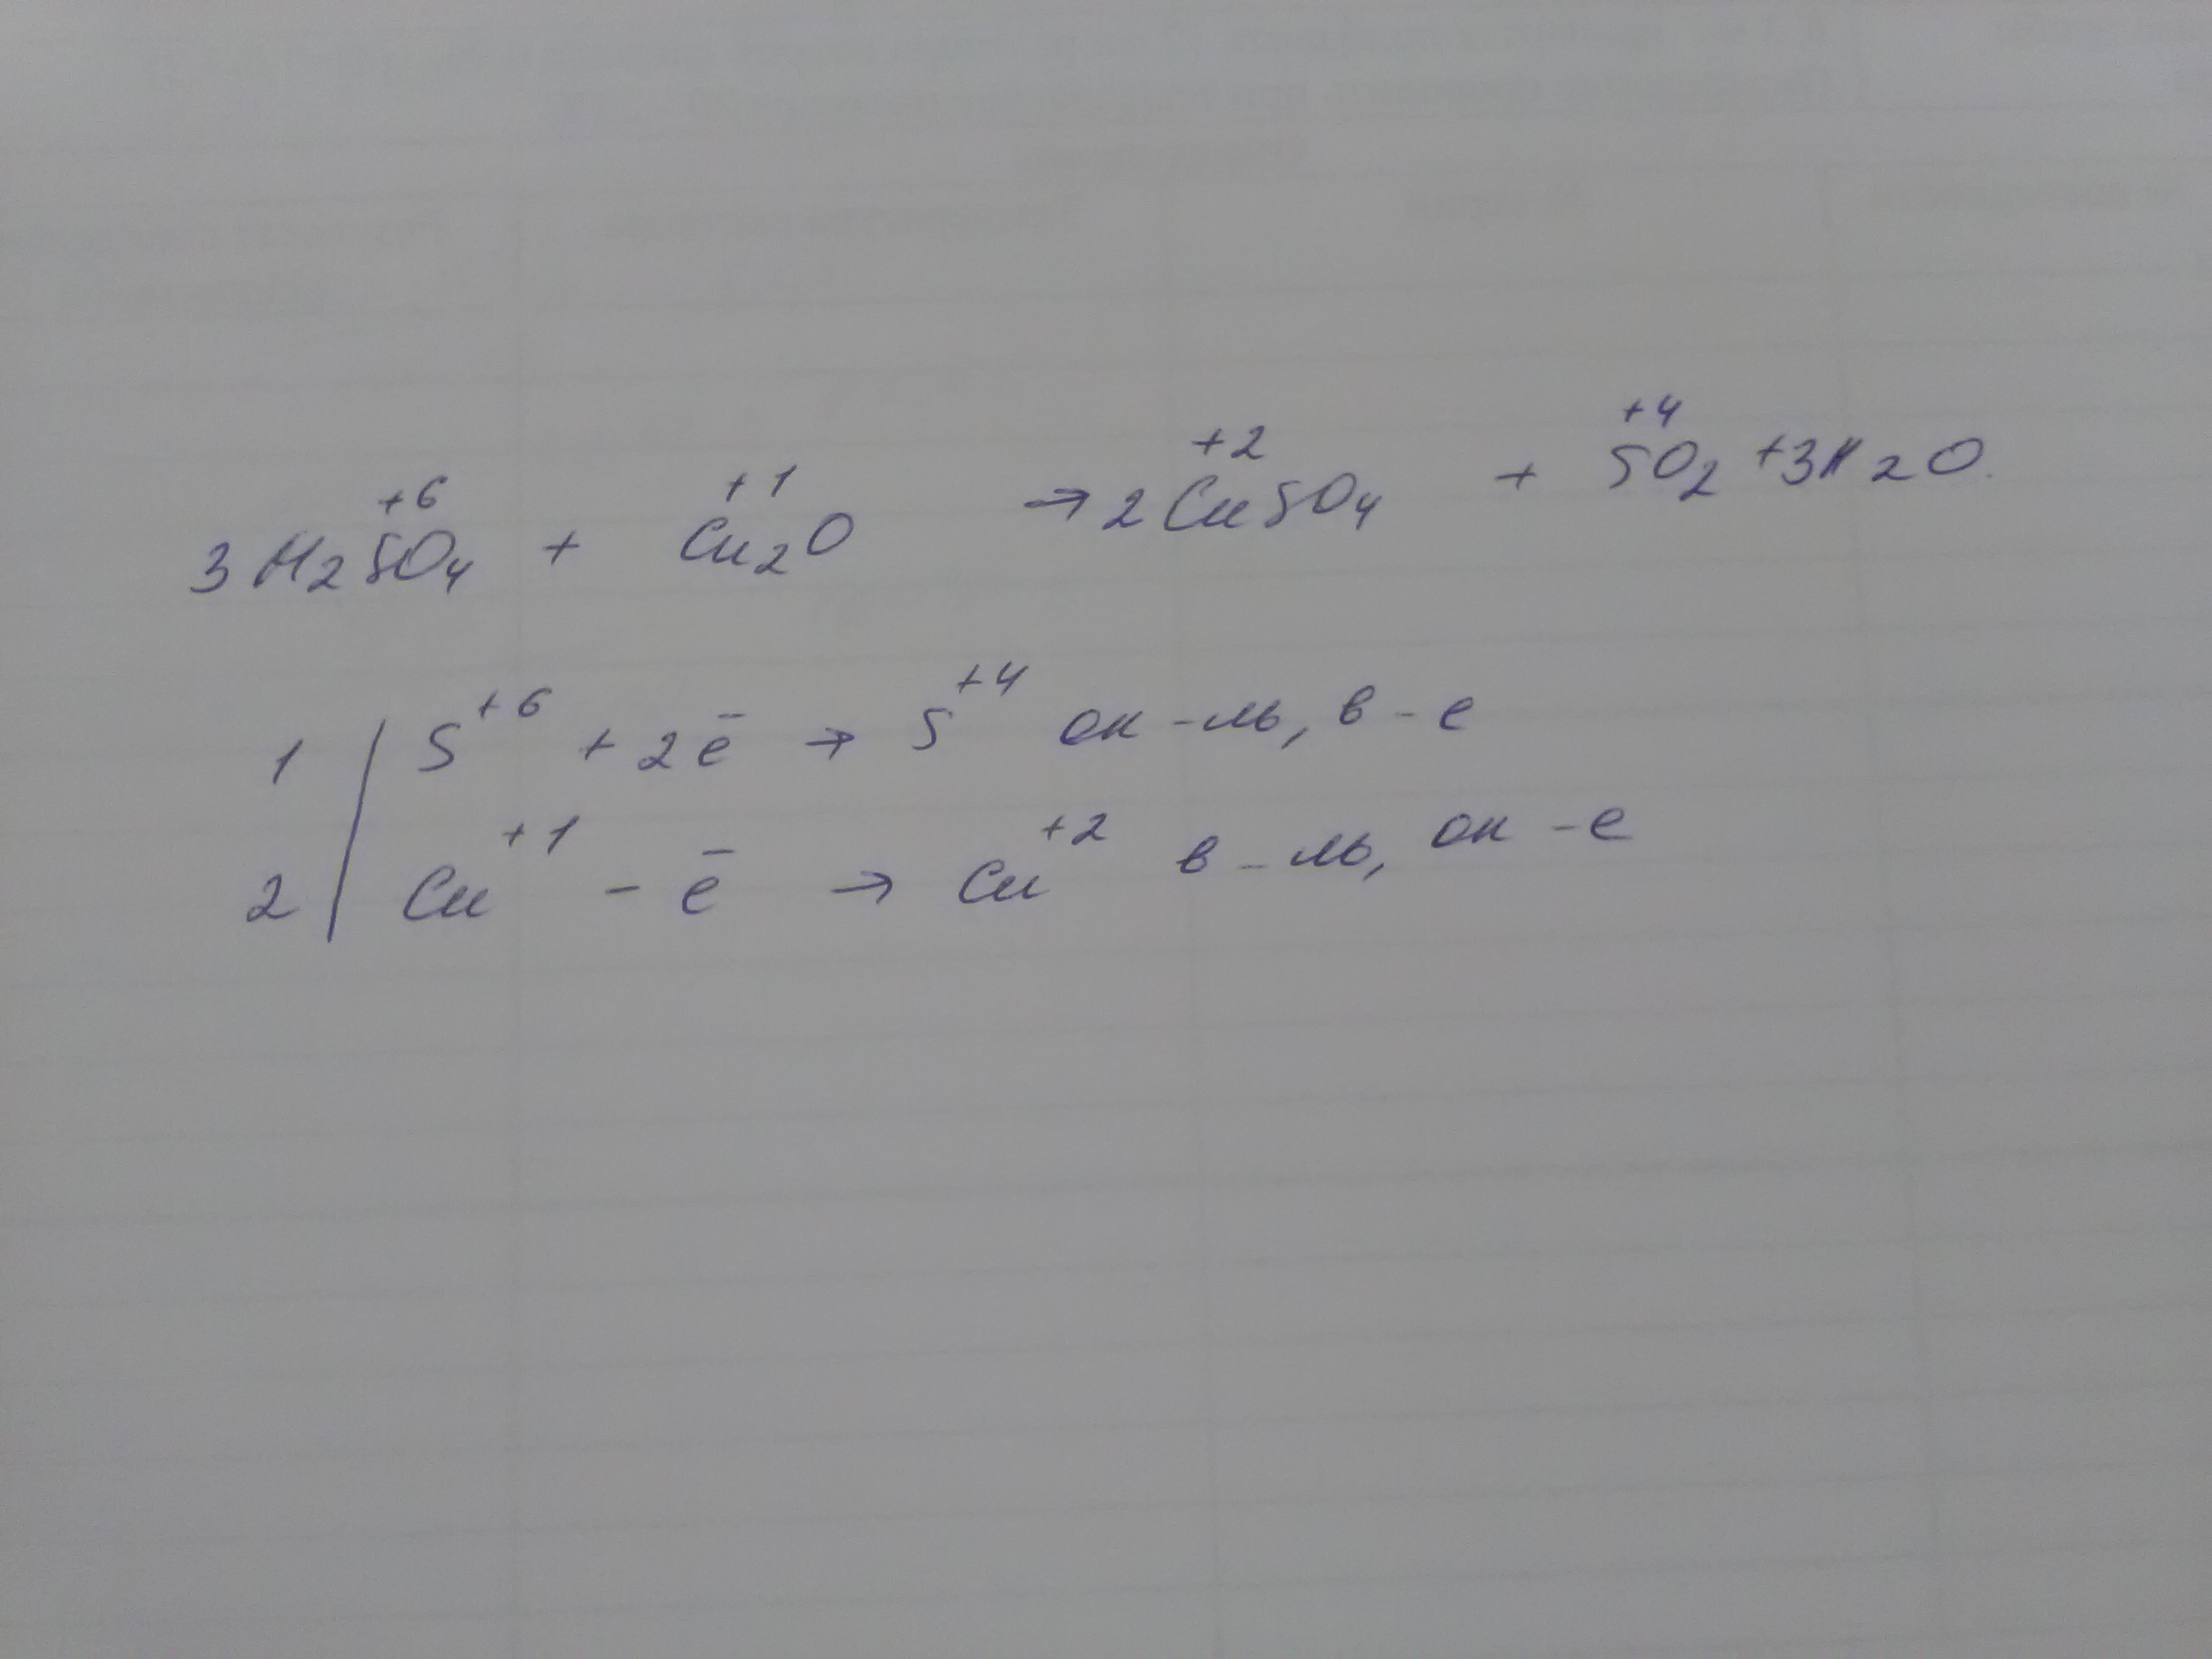 3H₂S⁺⁶O₄ + Cu⁺¹₂O → 2Cu⁺²SO₄ + S⁺⁴O₂ + 3H₂O.
1 | S⁺⁶ + 2ē → S⁺⁴ ок-ль, в-е
2 | Cu⁺¹ - ē → Cu⁺² в-ль, ок-е